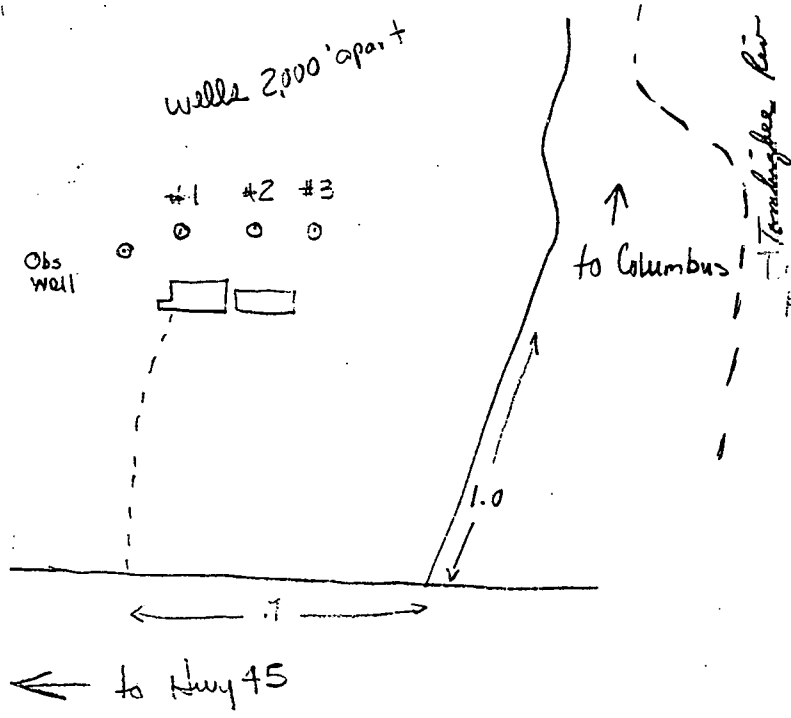 wells 2,000' apart
#1 #2 #3
Obs
well
to Columbus
Tombigbee Riv
1.0
.7
to Hwy 45